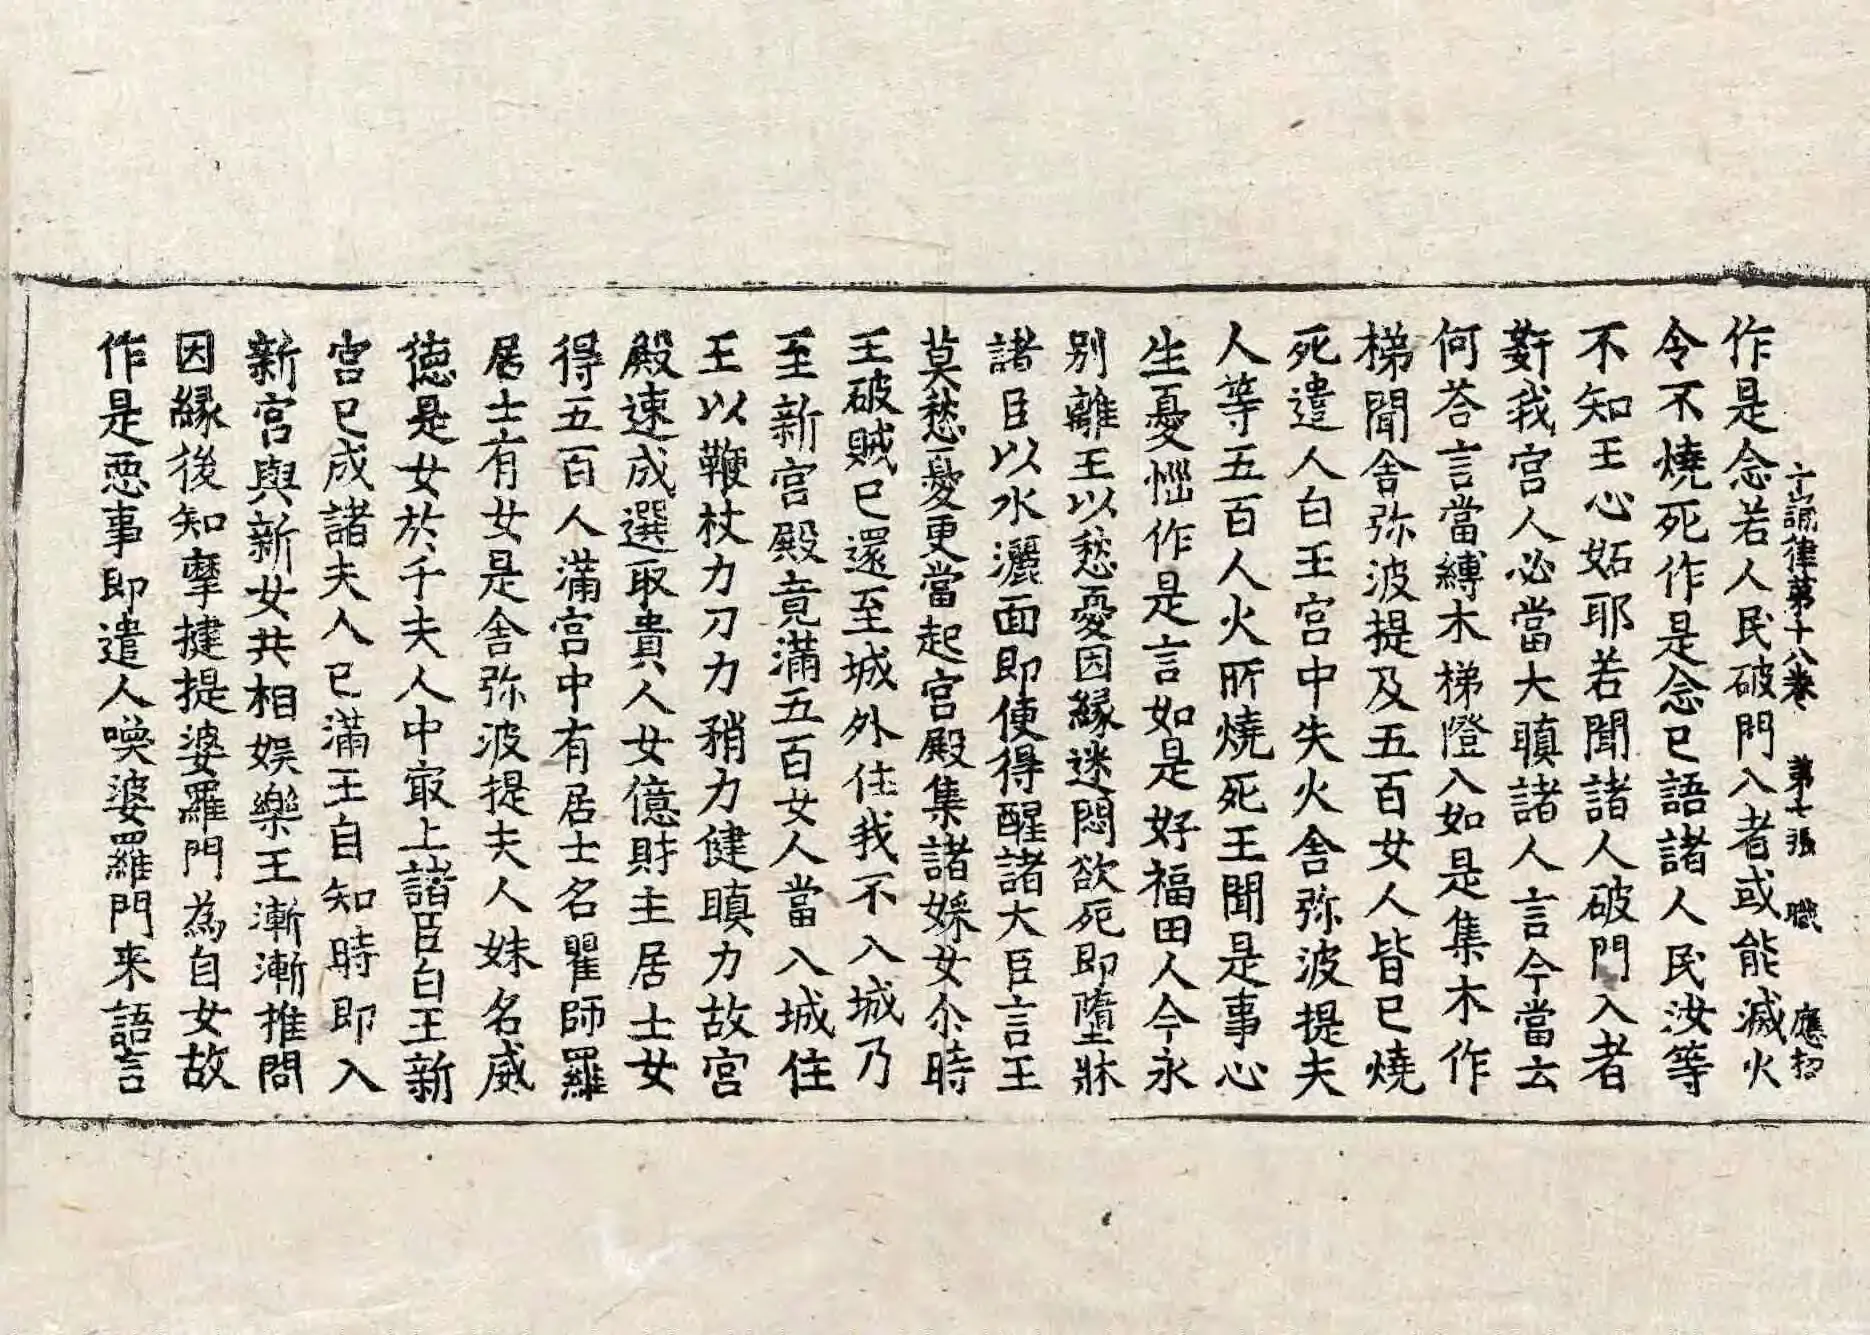 作是念若人民破門入者或能滅火
十誦律第十八卷 第七張 職 應招
令不燒死作是念已語諸人民汝等
不知王心妬耶若聞諸人破門入者
姧我宮人必當大瞋諸人言今當云
何荅言當縛木梯隥入如是集木作
梯聞舍弥波提及五百女人皆已燒
死遣人白王宮中失火舍弥波提夫
人等五百人火所燒死王聞是事心
生憂惱作是言如是好福田人今永
別離王以愁憂因緣迷悶欲死即墮牀
諸臣以水灑面即使得醒諸大臣言王
莫愁憂更當起宮殿集諸婇女尒時
王破賊已還至城外住我不入城乃
至新宮殿竟滿五百女人當入城住
王以鞭杖力刀力矟力健瞋力故宮
殿速成選取貴人女億財主居士女
得五百人滿宮中有居士名瞿師羅
居士有女是舍弥波提夫人妹名威
德是女於千夫人中㝡上諸臣白王新
宮已成諸夫人已滿王自知時即入
新宮與新女共相娛樂王漸漸推問
因緣後知摩揵提婆羅門為自女故
作是惡事即遣人喚婆羅門来語言